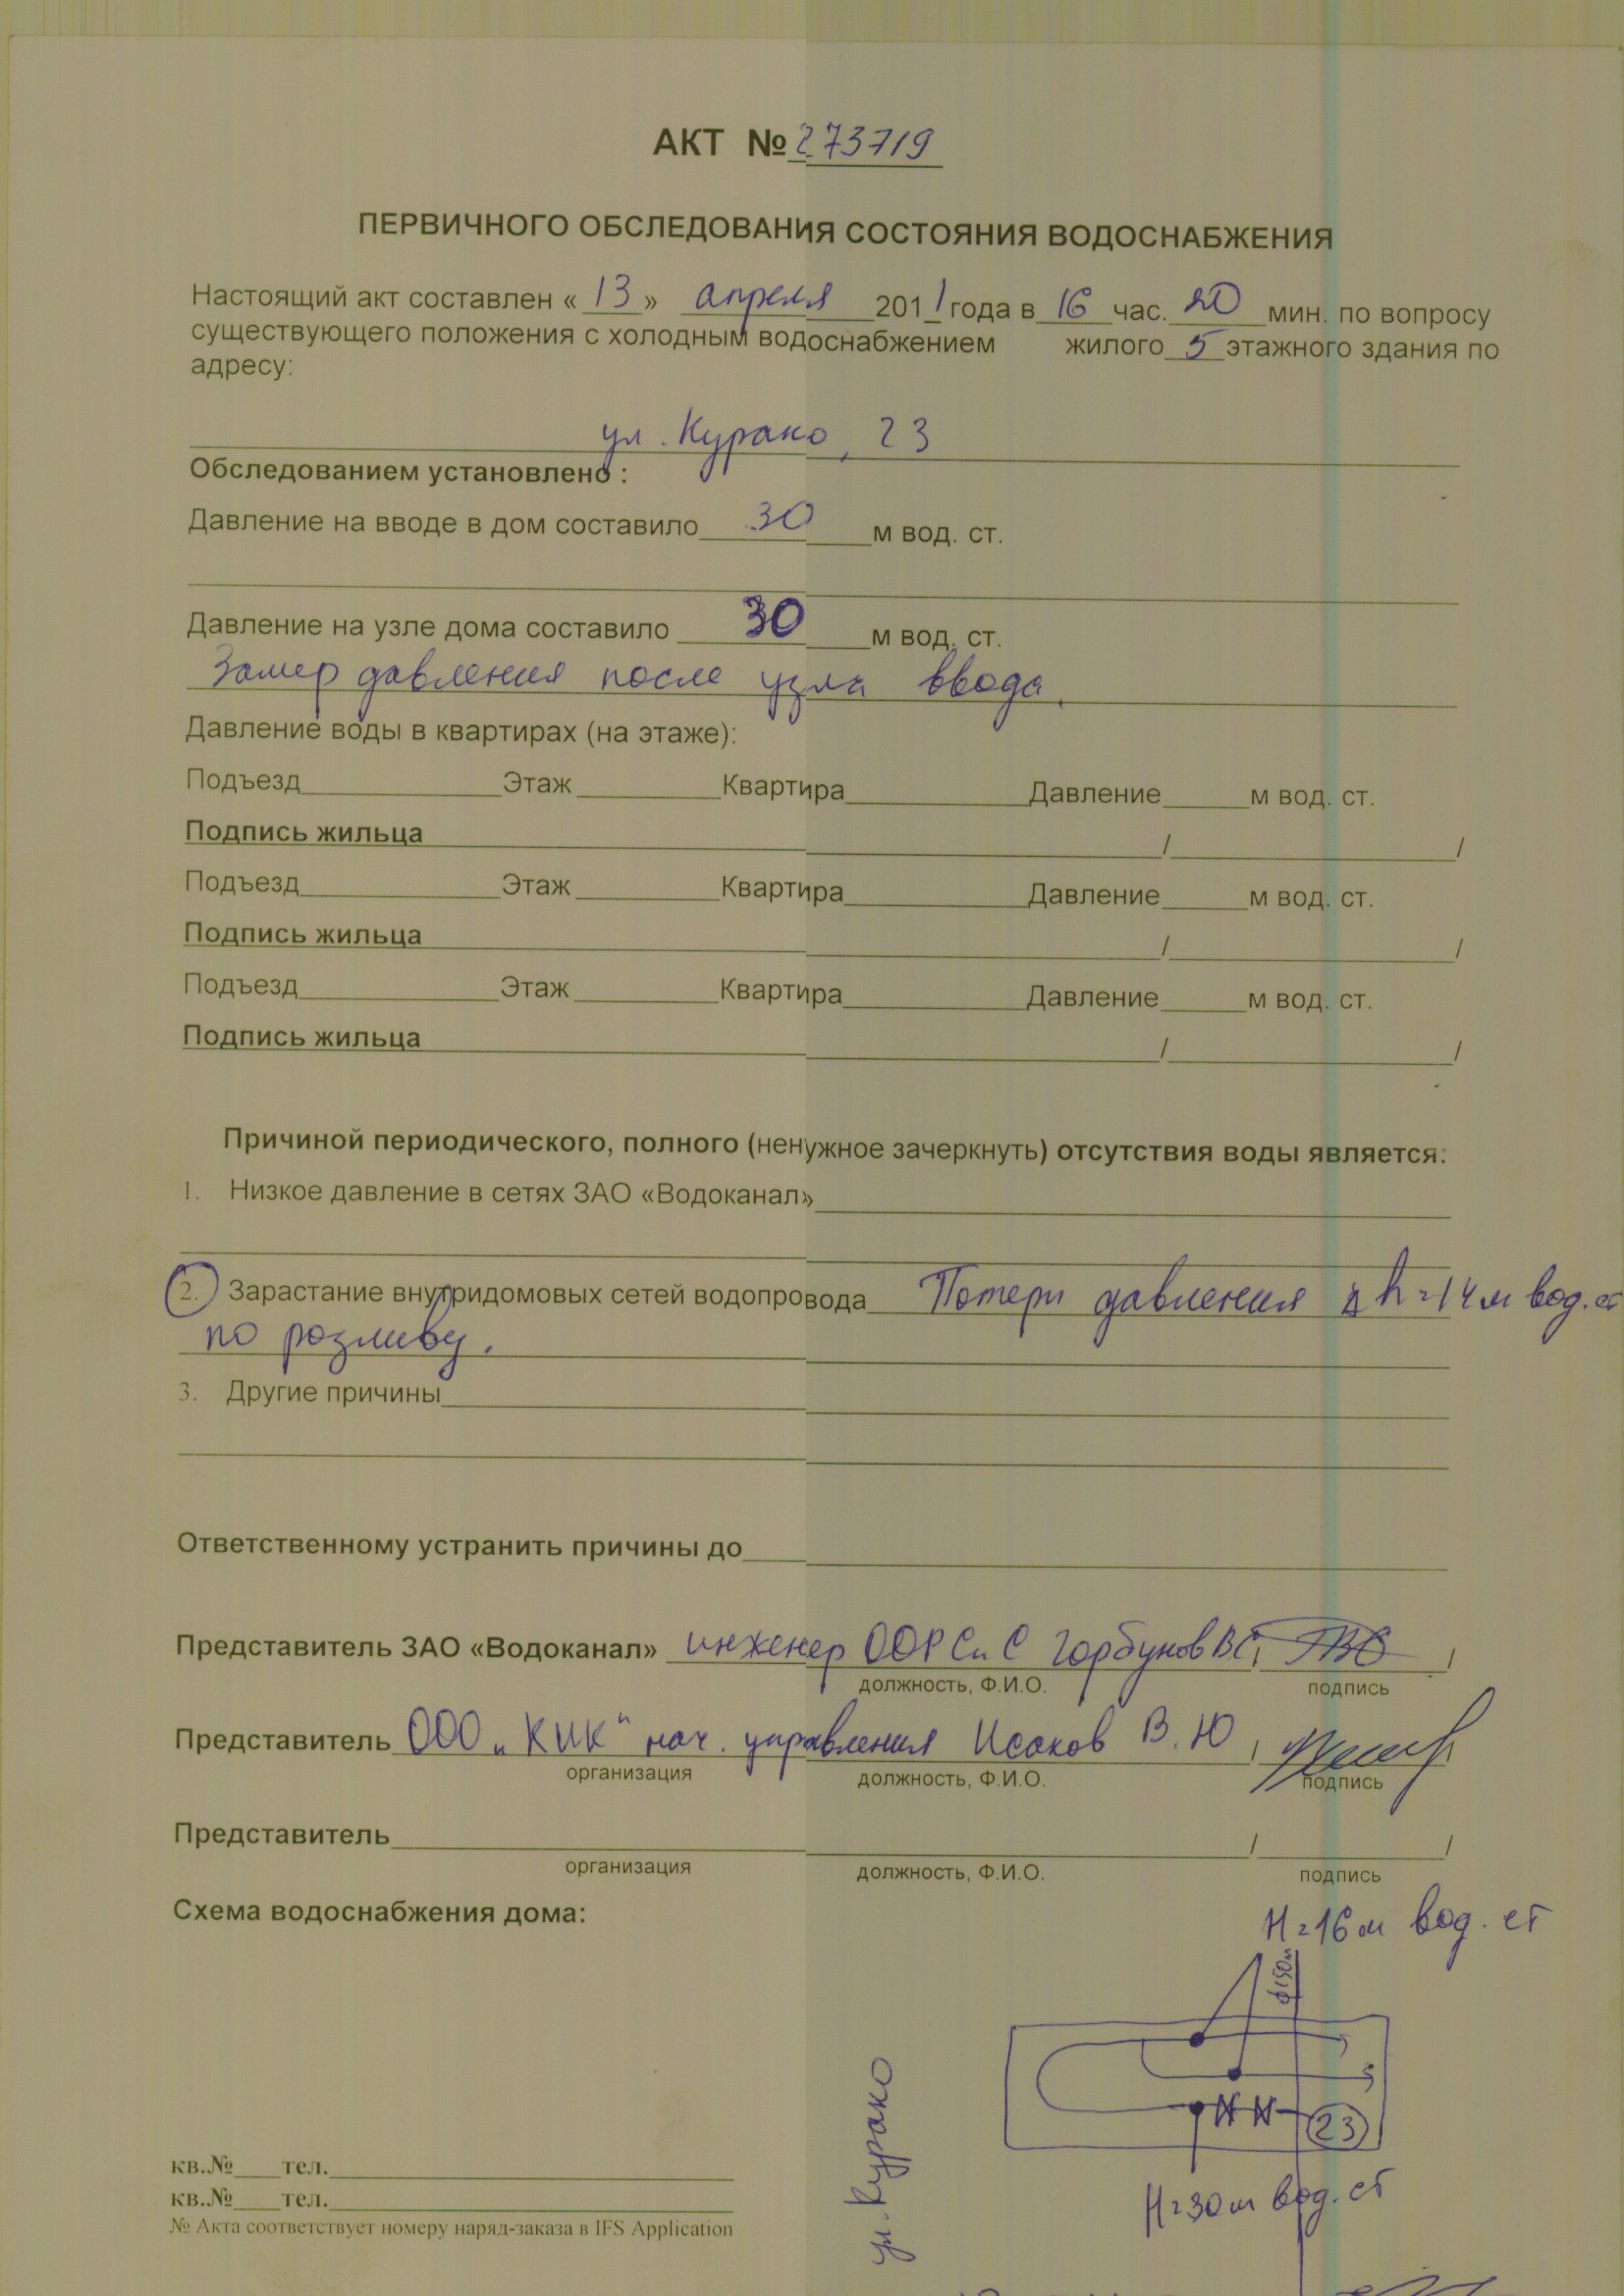 АКТ № 273719
ПЕРВИЧНОГО ОБСЛЕДОВАНИЯ СОСТОЯНИЯ ВОДОСНАБЖЕНИЯ
Настоящий акт составлен « 13 » апреля 2011 года в 16 час. 20 мин. по вопросу
существующего положения с холодным водоснабжением жилого 5 этажного здания по
адресу:
ул. Курако, 23
Обследованием установлено :
Давление на вводе в дом составило 30 м вод. ст.
Давление на узле дома составило 30 м вод. ст.
Замер давления после узла ввода.
Давление воды в квартирах (на этаже):
Подъезд Этаж Квартира Давление м вод. ст.
Подпись жильца / /
Подъезд Этаж Квартира Давление м вод. ст.
Подпись жильца / /
Подъезд Этаж Квартира Давление м вод. ст.
Подпись жильца / /
Причиной периодического, полного (ненужное зачеркнуть) отсутствия воды является:
1. Низкое давление в сетях ЗАО «Водоканал»
2. Зарастание внутридомовых сетей водопровода Потери давления h=14м вод.ст
по розливу.
3. Другие причины
Ответственному устранить причины до
Представитель ЗАО «Водоканал» инженер ООРСиС Горбунов В.С. /
должность, Ф.И.О. подпись
Представитель ООО „КИК" нач. управления Исаков В.Ю /
организация должность, Ф.И.О. подпись
Представитель / /
организация должность, Ф.И.О. подпись
Схема водоснабжения дома:
H=16м вод. ст
ф150м
23
ул. Курако
H=30м вод. ст
кв.№ тел.
кв.№ тел.
№ Акта соответствует номеру наряд-заказа в IFS Application